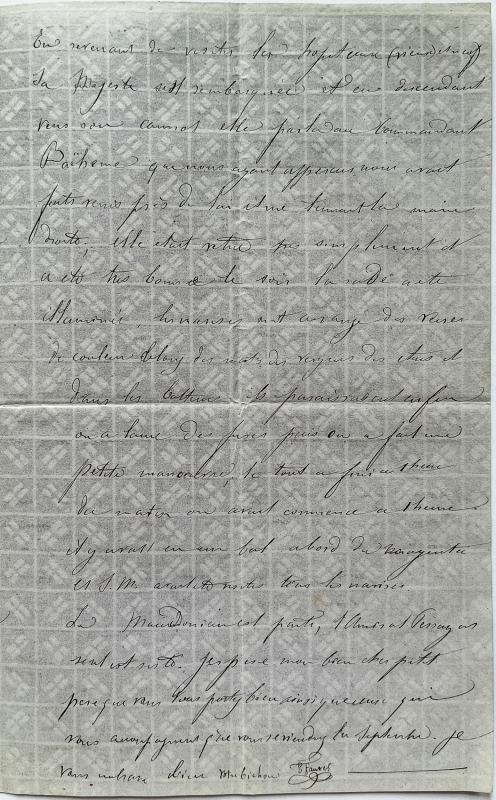 En revenant de visiter les hopitaux
Sa Majesté s'est rembarquée et en descendant
vers son cannot elle parla au Commandant
que nous ayant apperçus nous avait
faits venir près de lui et me tenant la main
droite; elle était vetue très simplement et
a été très bonne le soir la rade a été
illuminée, les navires ont arrangé des verres
de couleur le long des mats, des vergues des etais et
dans les enfin
on a lancé des fusées puis on a fait une
petite manoeuvre, le tout a fini a 1 heure
du matin on avait commencé a heure
il y avait eu un bal abord du Magenta
et S.M. avait visité tous les navires
La est partie, l'Amiral
seul est resté. J'espère mon bien cher petit
pere que vous vous portez bien ainsi que ceux qui
vous accompagnent que vous reviendrez en Septembre. Je
vous embrasse